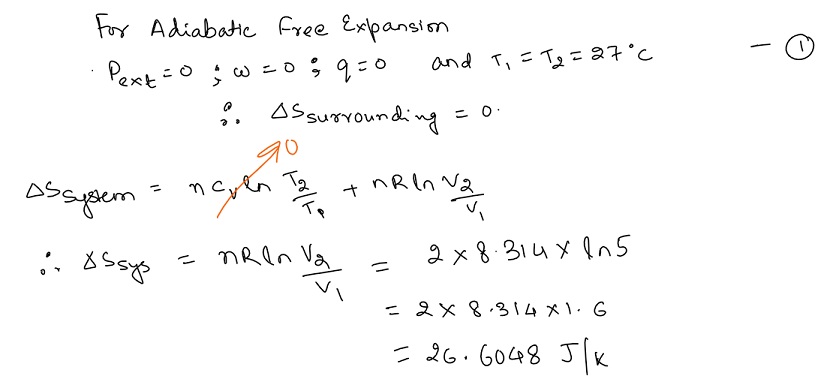 For Adiabatic Free Expansion
Pext = 0 ; w = 0 ; q = 0 and T1 = T2 = 27°C — ①
∴ ΔSsurrounding = 0.
0
ΔSsystem = nCv ln T2/T1 + nR ln V2/V1
∴ ΔSsys = nR ln V2/V1 = 2 × 8.314 × ln 5
= 2 × 8.314 × 1.6
= 26.6048 J/K